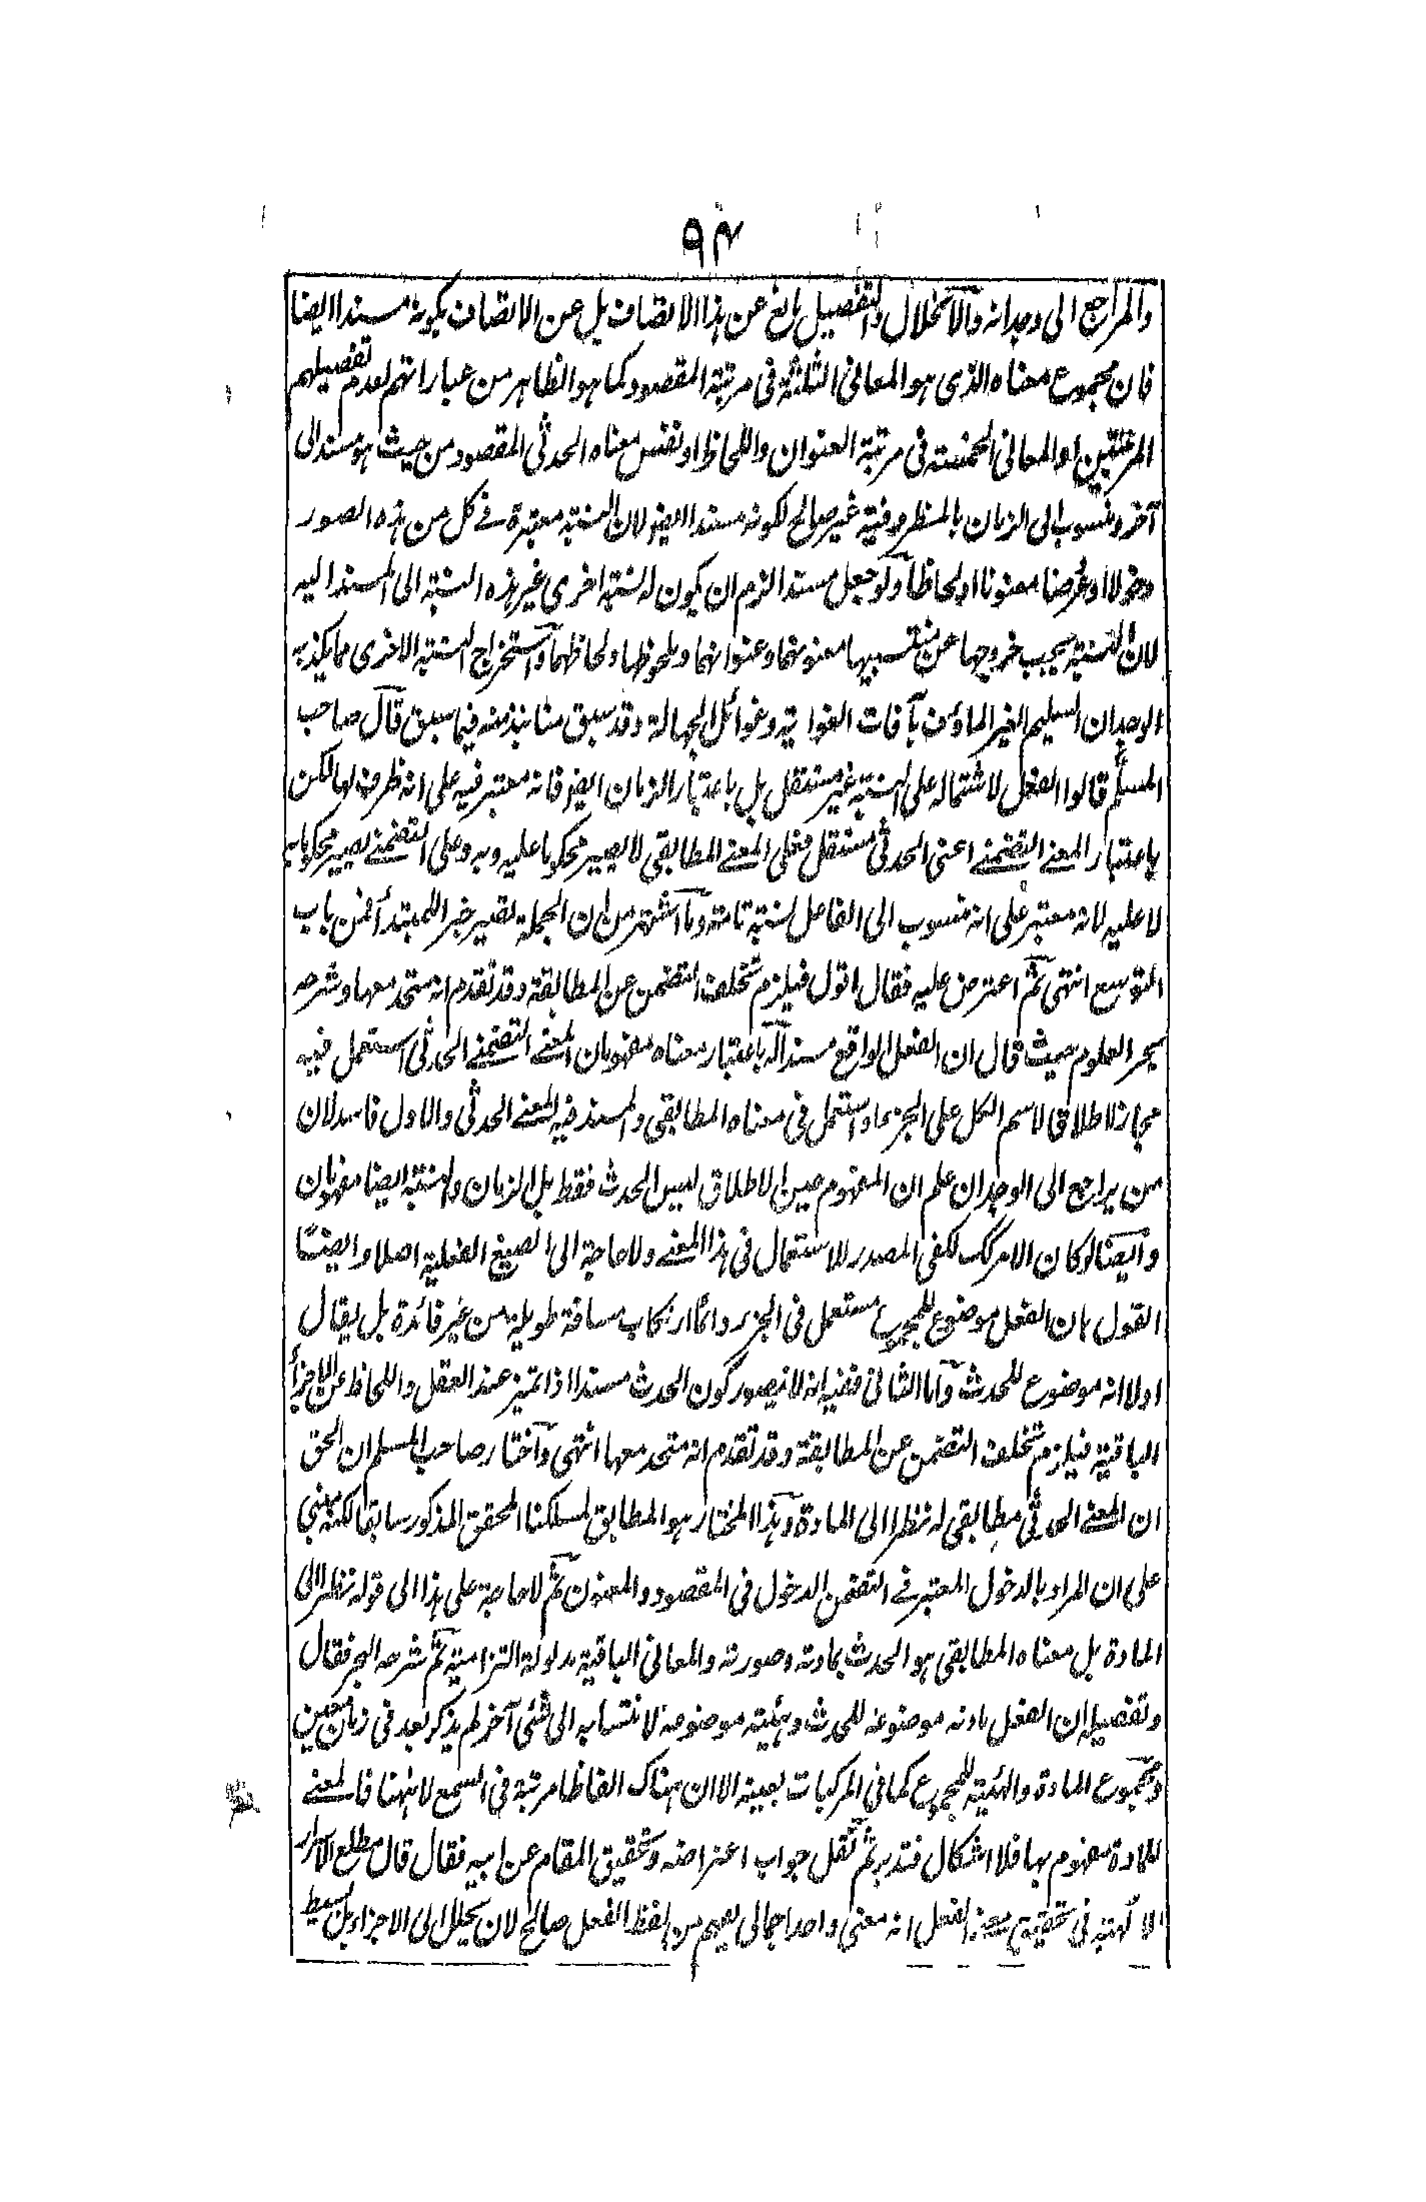 ٩٤
والمراجع الى وجدانه والانحلال والتفصيل مانع عن هذا الاتصاف بل عن الاتصاف بكونه مسندا ايضا
فان مجموع معناه الذى هو المعانى الثلثة فى مرتبة المقصود كما هو الظاهر من عباراتهم لعدم تفصيلهم
المرتبتين او المعانى الخمسة فى مرتبة العنوان واللحاظ او نفس معناه الحدثى المقصود من حيث هو مسند الى
آخر ومنسوب الى الزمان بالمظروفية غير صالح لكونه مسندا اليه لان النسبة معتبرة فے كل من هذه الصور
دخولا او عروضا معنونا او لحاظا ولو جعل مسندا لزم ان يكون له نسبة اخرى غير هذه النسبة الى المسند اليه
لان النسبة يجب خروجها عن منتسبيها معنونهما وعنوانهما وملحوظهما ولحاظهما واستخراج النسبة الاخرى مما يكذبه
الوجدان السليم الغير الماؤف بآفات الغواية وغوائل الجهالة وقد سبق منا نبذ منه فيما سبق قال صاحب
المسلم قالوا الفعل لاشتماله على النسبة غير مستقل بل باعتبار الزمان ايضا فانه معتبر فيه على انه ظرف لها لكن
باعتبار المعنے التضمنے اعنى الحدثى مستقل فعلى المعنے المطابقى لا يصير محكوما عليه وبه وعلى التضمنے يصير محكوما به
لا عليه لانه معتبر على انه منسوب الى الفاعل نسبة تامة وما اشتهر من ان الجملة تصير خبرا للمبتدأ فمن باب
التوسع انتهى ثم اعترض عليه فقال اقول فيلزم تخلف التضمن عن المطابقة وقد تقدم انه متحد معها وشرحه
بحر العلوم حيث قال ان الفعل الواقع مسندا له باعتبار معناه مفهومان المعنے التضمنے الحدثى استعمل فيه
مجازا لاطلاق لاسم الكل على الجزء او استعمل فى معناه المطابقى والمسند فيه المعنے الحدثى والاول فاسد لان
من يراجع الى الوجدان علم ان المفهوم حين الاطلاق ليس الحدث فقط بل الزمان والنسبة ايضا مفهومان
وايضا لو كان الامر كك لكفى المصدر للاستعمال فى هذا المعنے ولا حاجة الى الصيغ الفعلية اصلا وايضا
القول بان الفعل موضوع للمجموع مستعمل فى الجزء دائما ارتكاب مسافة طويلة من غير فائدة بل يقال
اولا انه موضوع للحدث واما الثانى ففيه انه لا يتصور كون الحدث مسندا اذا تميز عند العقل واللحاظ عن الاجزأ
الباقية فيلزم تخلف التضمن عن المطابقة وقد تقدم انه متحد معها انتهى واختار صاحب المسلم ان الحق
ان المعنے الحدثى مطابقى له نظرا الى المادة وهذا المختار هو المطابق لمسلكنا المحقق المذكور سابقا لكنه مبنى
على ان المراد بالدخول المعتبر فے التضمن الدخول فى المقصود والمعنون ثم لا حاجة على هذا الى قوله نظرا الى
المادة بل معناه المطابقى هو الحدث بمادته وصورته والمعانى الباقية مدلولة التزامية ثم شرحه البحر فقال
وتفصيله ان الفعل مادته موضوعه للحدث وهيئته موضوعة لانتسابه الى شئى آخر لم يذكر بعد فى زمان معين
ومجموع المادة والهيئة للمجموع كما فى المركبات بعينه الا ان هناك الفاظا مرتبة فى السمع لا ههنا فالمعنے
للمادة مفهوم بها فلا اشكال فتدبر ثم نقل جواب اعتراضه وتحقيق المقام عن ابيه فقال قال مطلع الاسرار
الالهية فى تحقيق معنے الفعل انه معنى واحد اجمالى يفهم من لفظ الفعل صالح لان يحلل الى الاجزاء بل بسيط